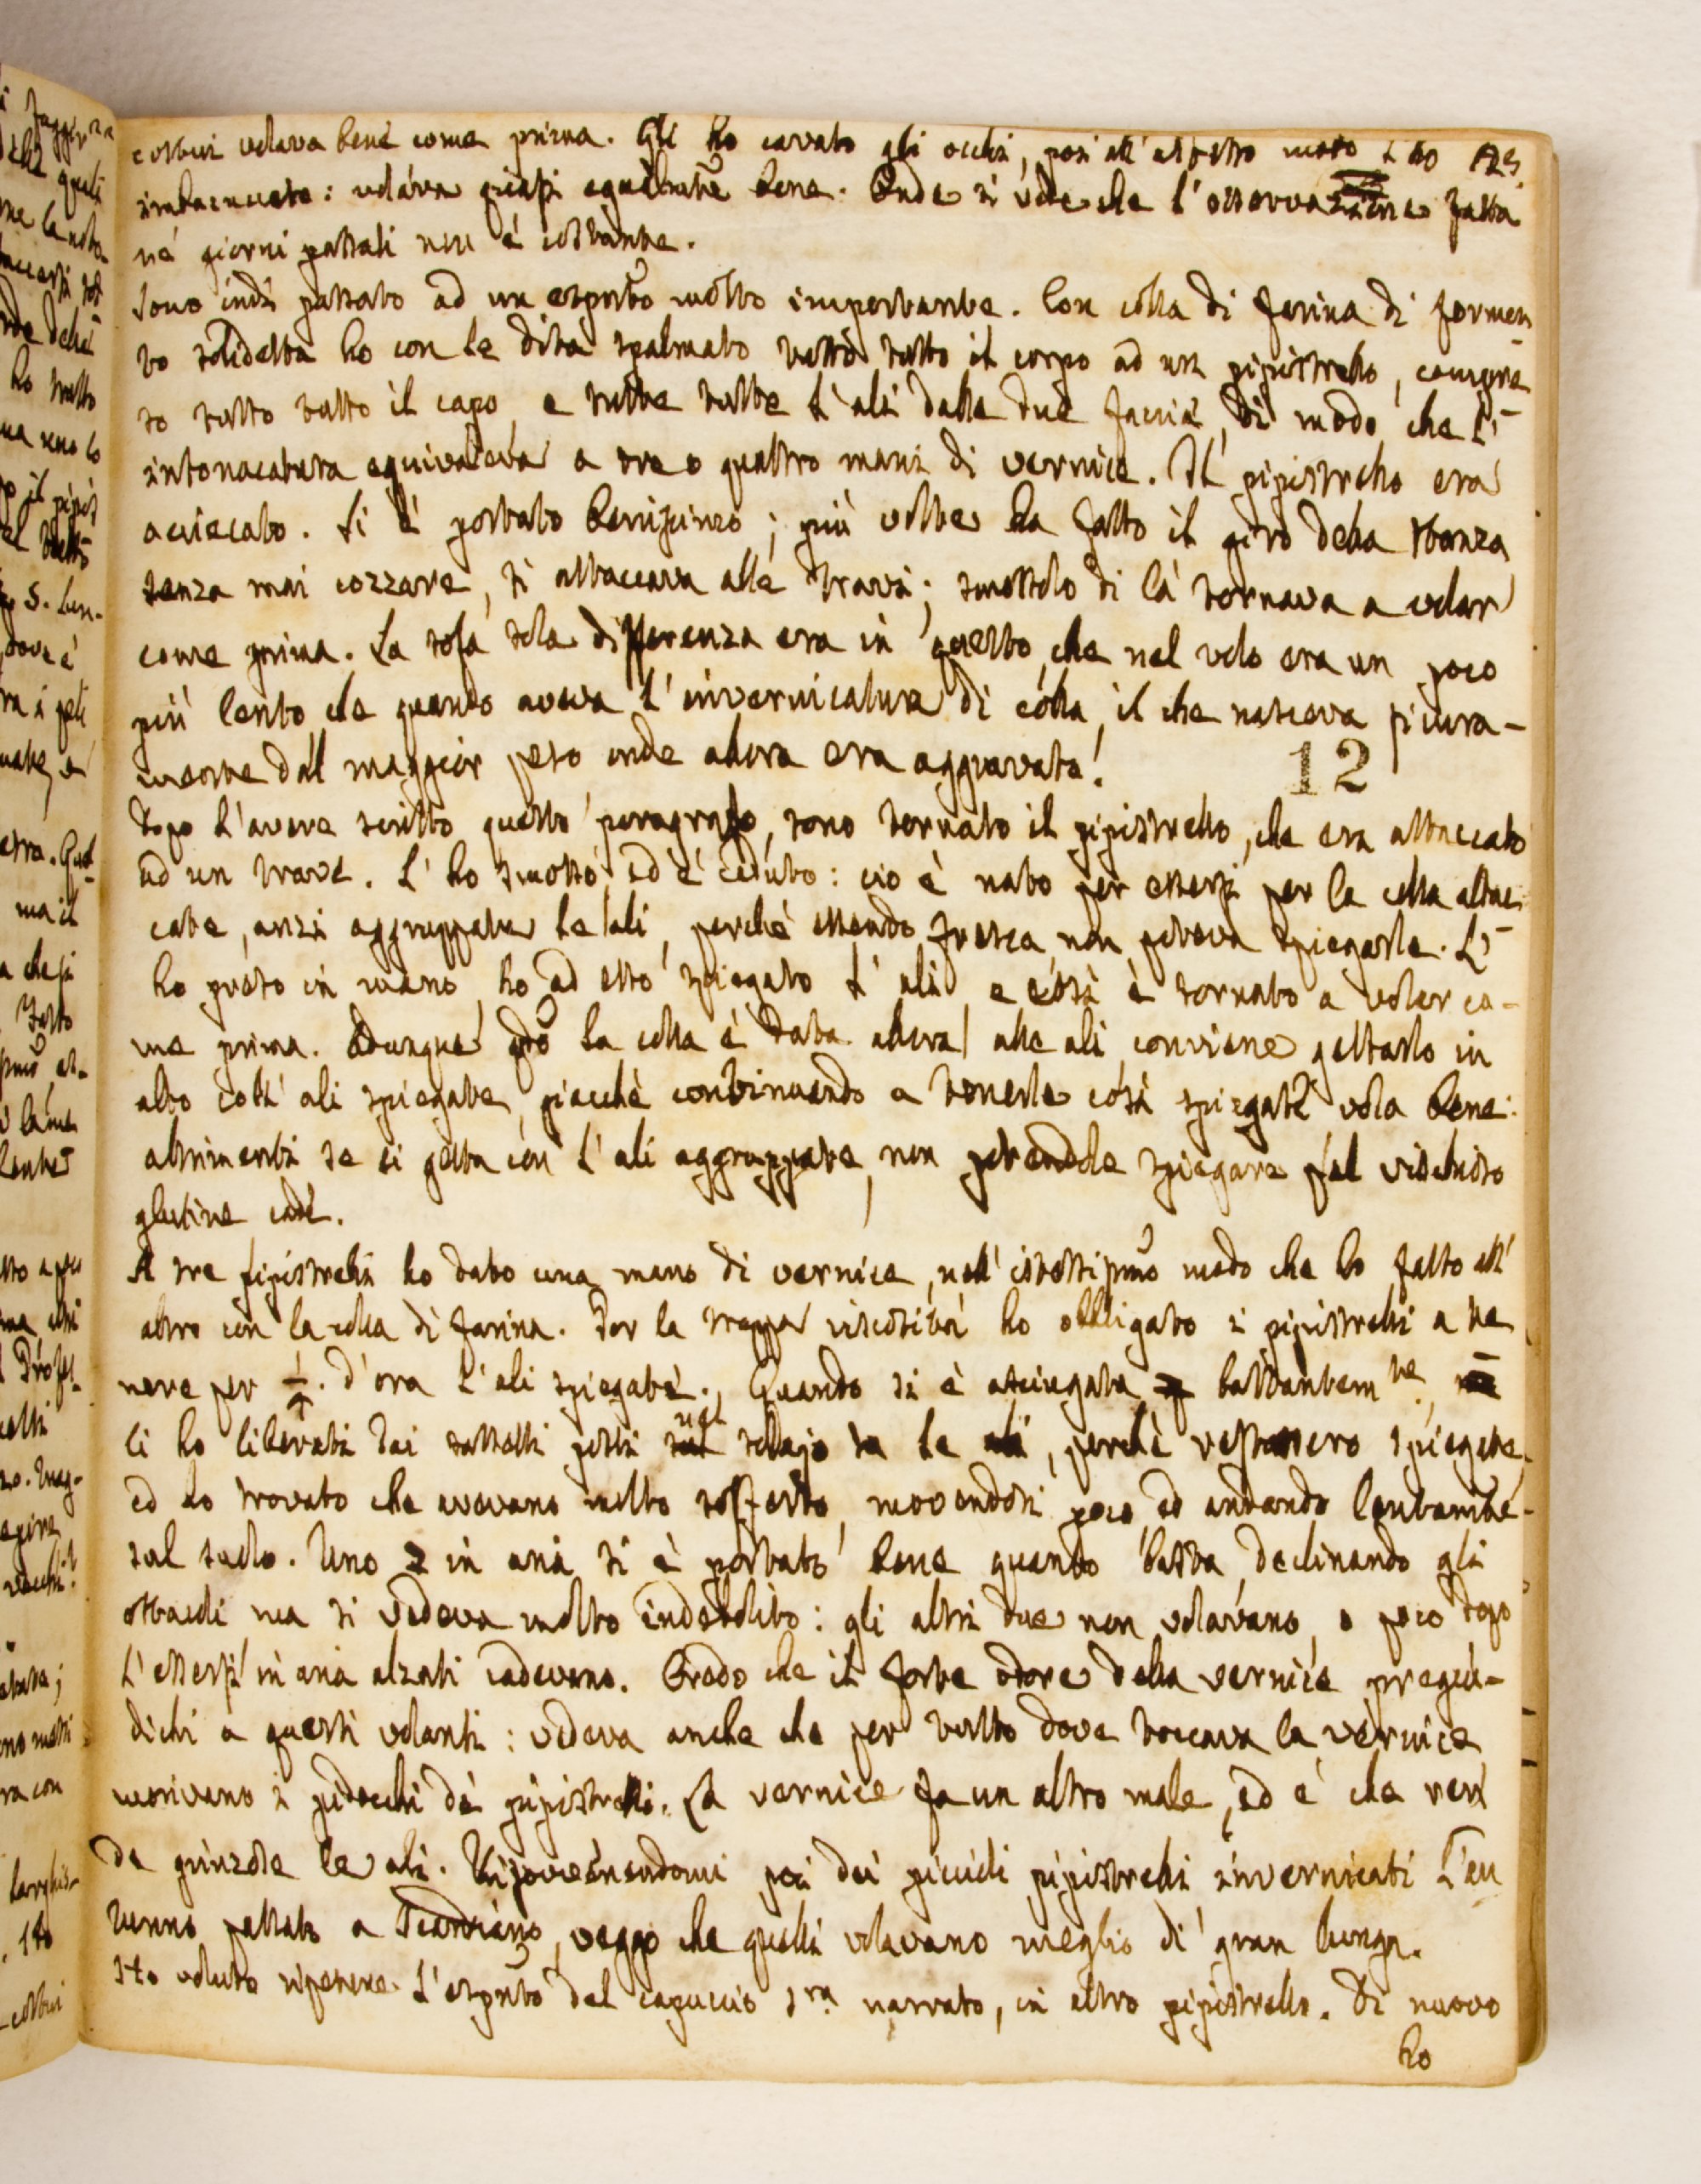 costui volava bene come prima. Gli ho cavato gli occhi, poi all' istesso modo l' ho 125.
imbacuccato: volava quasi egualmte bene. Onde si vede che l'osservazione fatta
ne' giorni passati non è costante.
Sono indi passato ad un esprto molto importante. Con colla di farina di formen
to sodidetta ho con le dita spalmato tutto tutto il corpo ad un pipistrello, compre
so tutto tutto il capo, e tutte tutte l'ali dalle due faccie, di modo che l'
intonacatura equivaleva a tre o quattro mani di vernice. Il pipistrello era
acciecato. Si è portato benissimo; più volte ha fatto il giro della stanza
senza mai cozzare, si attaccava alle travi; smossolo di là tornava a volar
come prima. La sola sola differenza era in questo, che nel volo era un poco
più lento, che quando aveva l'invernicatura di colla, il che nasceva sicura-
mente dal maggior peso onde allora era aggravato.
12
Dopo l'avere scritto questo paragrafo, sono tornato il pipistrello, che era attaccato
ad un trave. L' ho smosso, ed è caduto: ciò è nato per essersi per la colla attac
cate, anzi aggruppate le ali, perchè essendo fresca, non poteva spiegarle. L'
ho preso in mano, ho ad esso spiegato l' ali, e così è tornato a volar co-
me prima. Adunque qdo la colla è data allora alle ali, conviene gettarlo in
alto coll' ali spiegate, giacchè continuando a tenerle così spiegate vola bene:
altrimenti se si getta con l' ali aggruppate, non potendole spiegare pel vischioso
glutine cade.
A tre pipistrelli ho dato una mano di vernice, nell' istessissmo modo che ho fatto all'
altro con la colla di farina. Per la troppa viscosità ho obbligato i pipistrelli a te
nere per 1/4. d'ora l'ali spiegate. Quando si è asciugata bastantemte,
li ho liberati dai sassolli posti nel telajo le ali, perchè restassero spiegate,
ed ho trovato che avevano molto sofferto, movendosi poco, ed andando lentamte
sul suolo. Uno in aria si è portato bene quanto basta declinando gli
ostacoli ma si vedeva molto indebolito: gli altri due non volavano, o poco dopo
l'essersi in aria alzati cadevano. Credo che il forte odore della vernice pregiu-
dichi a questi volanti: vedeva anche che per tutto dove toccava la vernice
morivano i pidocchi de' pipistrelli. La vernice fa un altro male, ed è che ren
de grinzose le ali. Risovvenendomi poi dei piccioli pipistrelli invernicati l'au
tunno passato a Scandiano, veggo che quelli volavano meglio di gran lunga.
Ho voluto ripetere l'esprto del capuccio sra narrato, in altro pipistrello. Di nuovo
ho